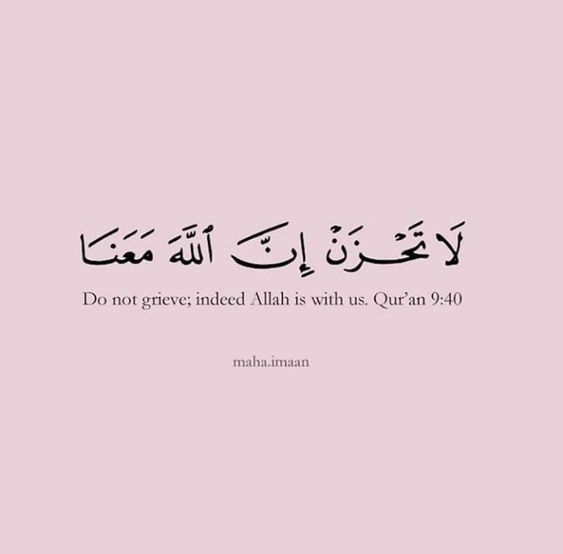 لَا تَحْزَنْ إِنَّ ٱللَّهَ مَعَنَا
Do not grieve; indeed Allah is with us. Qur'an 9:40
maha.imaan